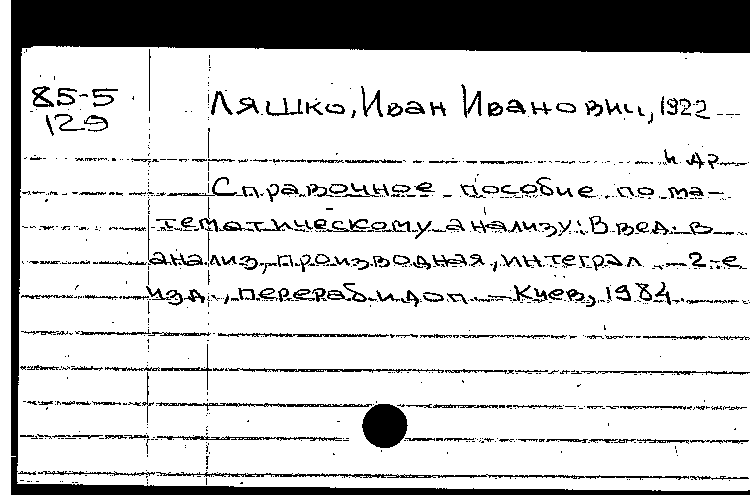 85-5
129
Ляшко, Иван Иванович, 1922
и др
Справочное пособие по ма-
тематическому анализу: Введ. в
анализ, производная, интеграл. — 2-е
изд., перераб и доп — Киев, 1984